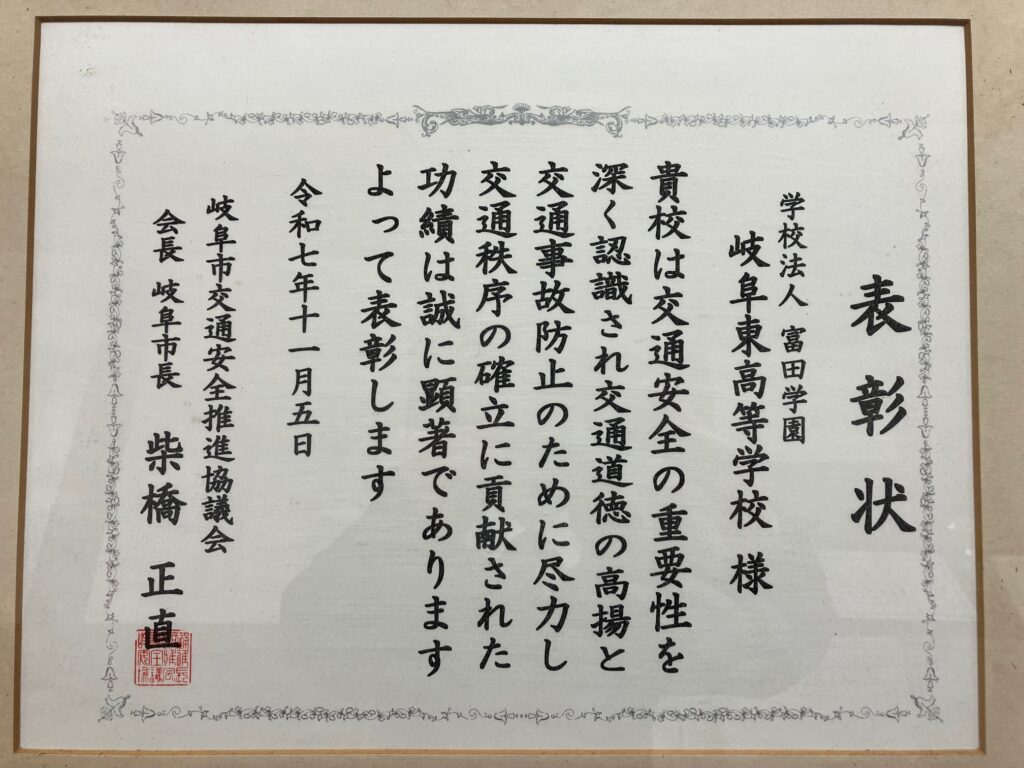 表彰状
学校法人 富田学園
岐阜東高等学校 様
貴校は交通安全の重要性を
深く認識され交通道徳の高揚と
交通事故防止のために尽力し
交通秩序の確立に貢献された
功績は誠に顕著であります
よって表彰します
令和七年十一月五日
岐阜市交通安全推進協議会
会長 岐阜市長 柴橋 正直